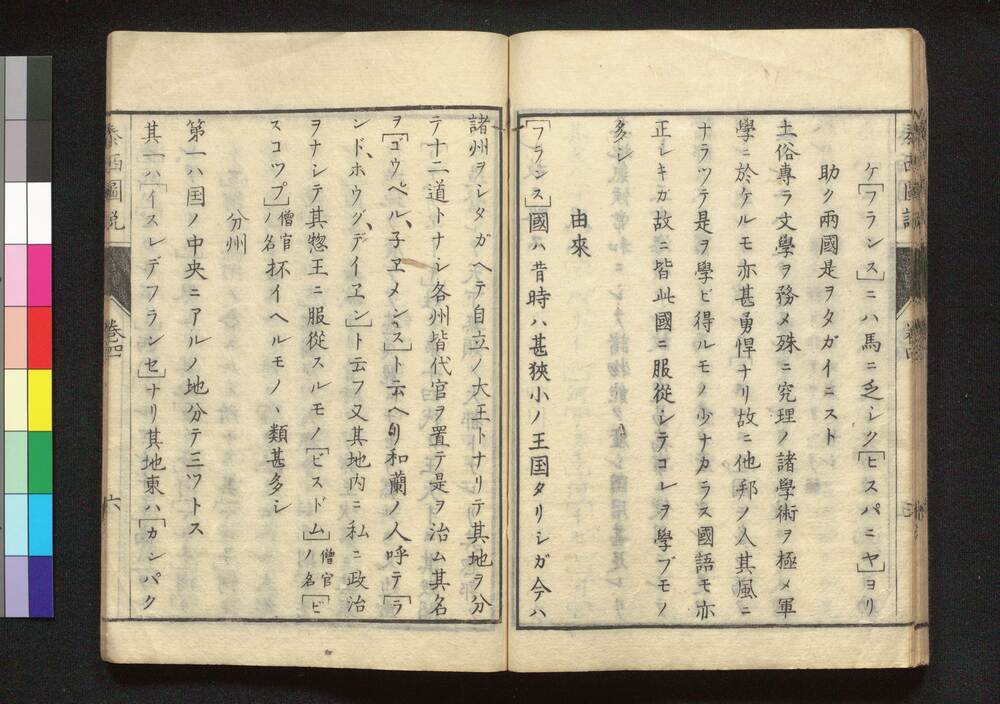 泰西圖説
卷四
ケ「フランス」ニハ馬ニ乏シク「ヒスパニヤ」ヨリ
助ク兩國是ヲタガイニスト
土俗專ラ文學ヲ務メ殊ニ究理ノ諸學術ヲ極メ軍
學ニ於ケルモ亦甚勇悍ナリ故ニ他邦ノ人其風ニ
ナラツテ是ヲ學ビ得ルモノ少ナカラス國語モ亦
正シキガ故ニ皆此國ニ服從シテコレヲ學ブモノ
多シ
由來
「フランス」國ハ昔時ハ甚狹小ノ王国タリシガ今ハ
諸州ヲシタガヘテ自立ノ大王トナリテ其地ヲ分
テ十二道トナシ各州皆代官ヲ置テ是ヲ治ム其名
ヲ「ゴウペル子ヱメンス」ト云ヘリ和蘭ノ人呼テ「ラ
ンドホウグデイヱン」ト云フ又其地内ニ私ニ政治
ヲナシテ其惣王ニ服從スルモノ「ビスドム」僧官ノ名「ビ
スコツプ」僧官ノ名抔イヘルモノヽ類甚多シ
分州
第一ハ国ノ中央ニアルノ地分テ三ツトス
其一ハ「イスレデフランセ」ナリ其地東ハ「カンパク
泰西圖説
卷四
六